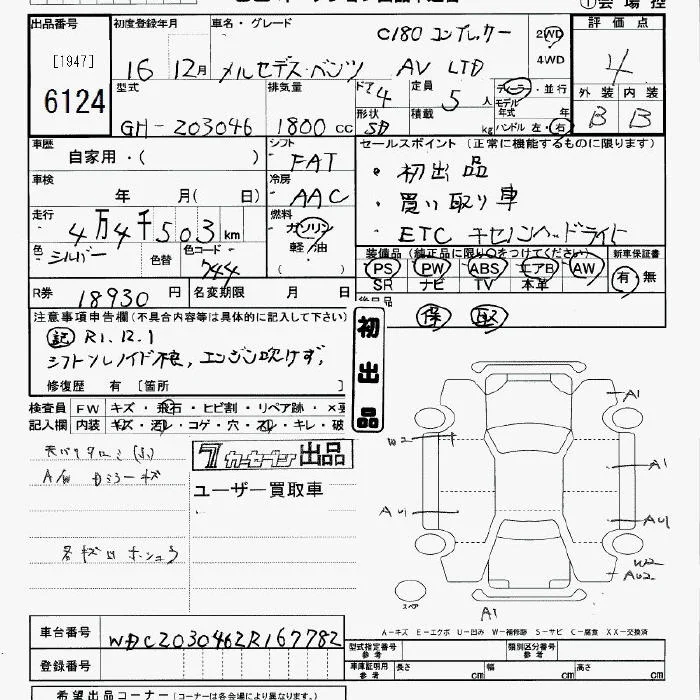 ①会場控
出品番号
[1947]
6124
初度登録年月
16 12月
車名・グレード
C180 コンプレッサー
メルセデス・ベンツ AV LTD
2WD
4WD
評価点
4
外装 内装
B B
型式
GH-203046
排気量
1800 cc
ドア 4
形状
SD
定員 5 人
積載 kg
ディーラー・並行
モデル年式 年
ハンドル 左・右
車歴
自家用・( )
シフト
FAT
車検
年 月(日)
冷房
AAC
走行
4万4千503km
燃料
ガソリン
軽油
( )
色
シルバー
色替
色コード
744
セールスポイント(正常に機能するものに限ります)
・初出品
・買い取り車
・ETC キセノンヘッドライト
装備品(純正品に限り○をつけてください)
PS PW ABS エアB AW
SR ナビ TV 本革
新車保証書
有 無
後日品
保 取
R券 18930円
名変期限 月 日
注意事項申告欄(不具合内容等は具体的に記入して下さい)
記 R1.12.1
シフトソレノイド不良, エンジン吹けず,
修復歴 有 [箇所 ]
初出品
検査員 FW キズ・飛石・ヒビ割・リペア跡・×要
記入欄 内装 キズ・汚れ・コゲ・穴・スレ・キレ・破
A/W Dミラーキズ
7 カーセブン 出品
ユーザー買取車
A1
W2
A1
AU1
AU1
W2
AU2
スペア
A1
A-キズ E-エクボ U-凹み W-補修跡 S-サビ C-腐食 XX-交換済
車台番号 WDC2030462R167782
登録番号
型式指定番号
参考
類別区分番号
参考
車庫証明用
参考
長さ cm 幅 cm 高さ cm
希望出品コーナー(コーナーは各会場により異なります。)